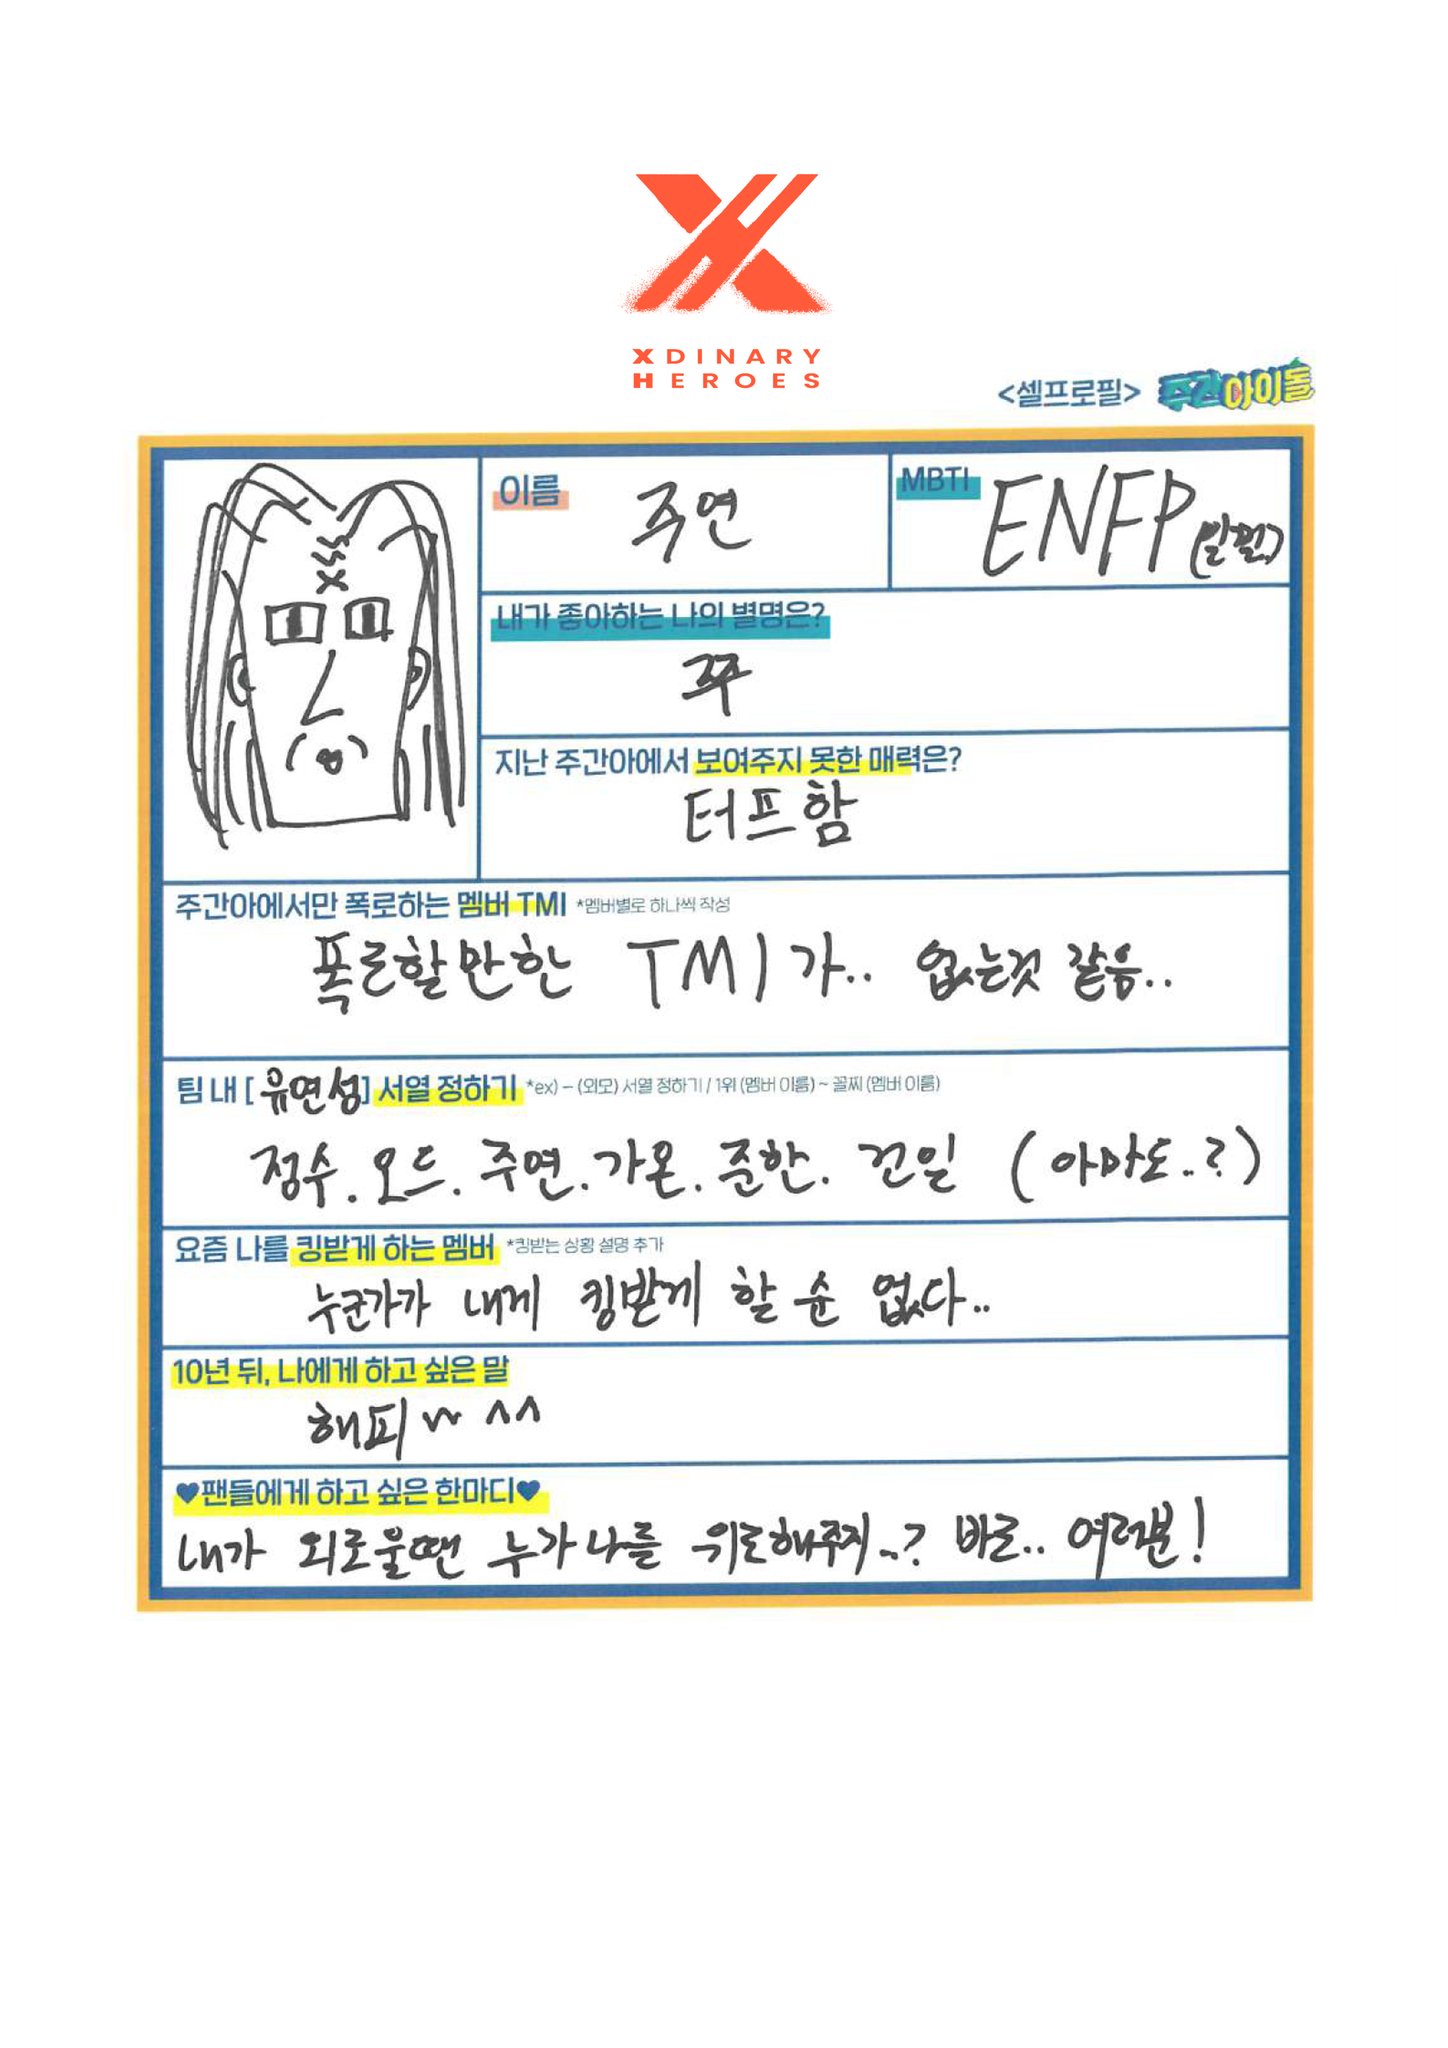 XDINARY
HEROES
<셀프로필> 주간아이돌
이름 주연
MBTI ENFP
내가 좋아하는 나의 별명은?
쭈
지난 주간아에서 보여주지 못한 매력은?
터프함
주간아에서만 폭로하는 멤버 TMI *멤버별로 하나씩 작성
폭로할만한 TMI가.. 없는것 같음..
팀 내 [유연성] 서열 정하기 *ex) – (외모) 서열 정하기 / 1위 (멤버 이름) ~ 꼴찌 (멤버 이름)
정수. 오드. 주연. 가온. 준한. 건일 (아마도..?)
요즘 나를 킹받게 하는 멤버 *킹받는 상황 설명 추가
누군가가 내게 킹받게 할 순 없다..
10년 뒤, 나에게 하고 싶은 말
해피~ ^^
♥팬들에게 하고 싶은 한마디♥
내가 외로울땐 누가 나를 위로해주지..? 바로.. 여러분!